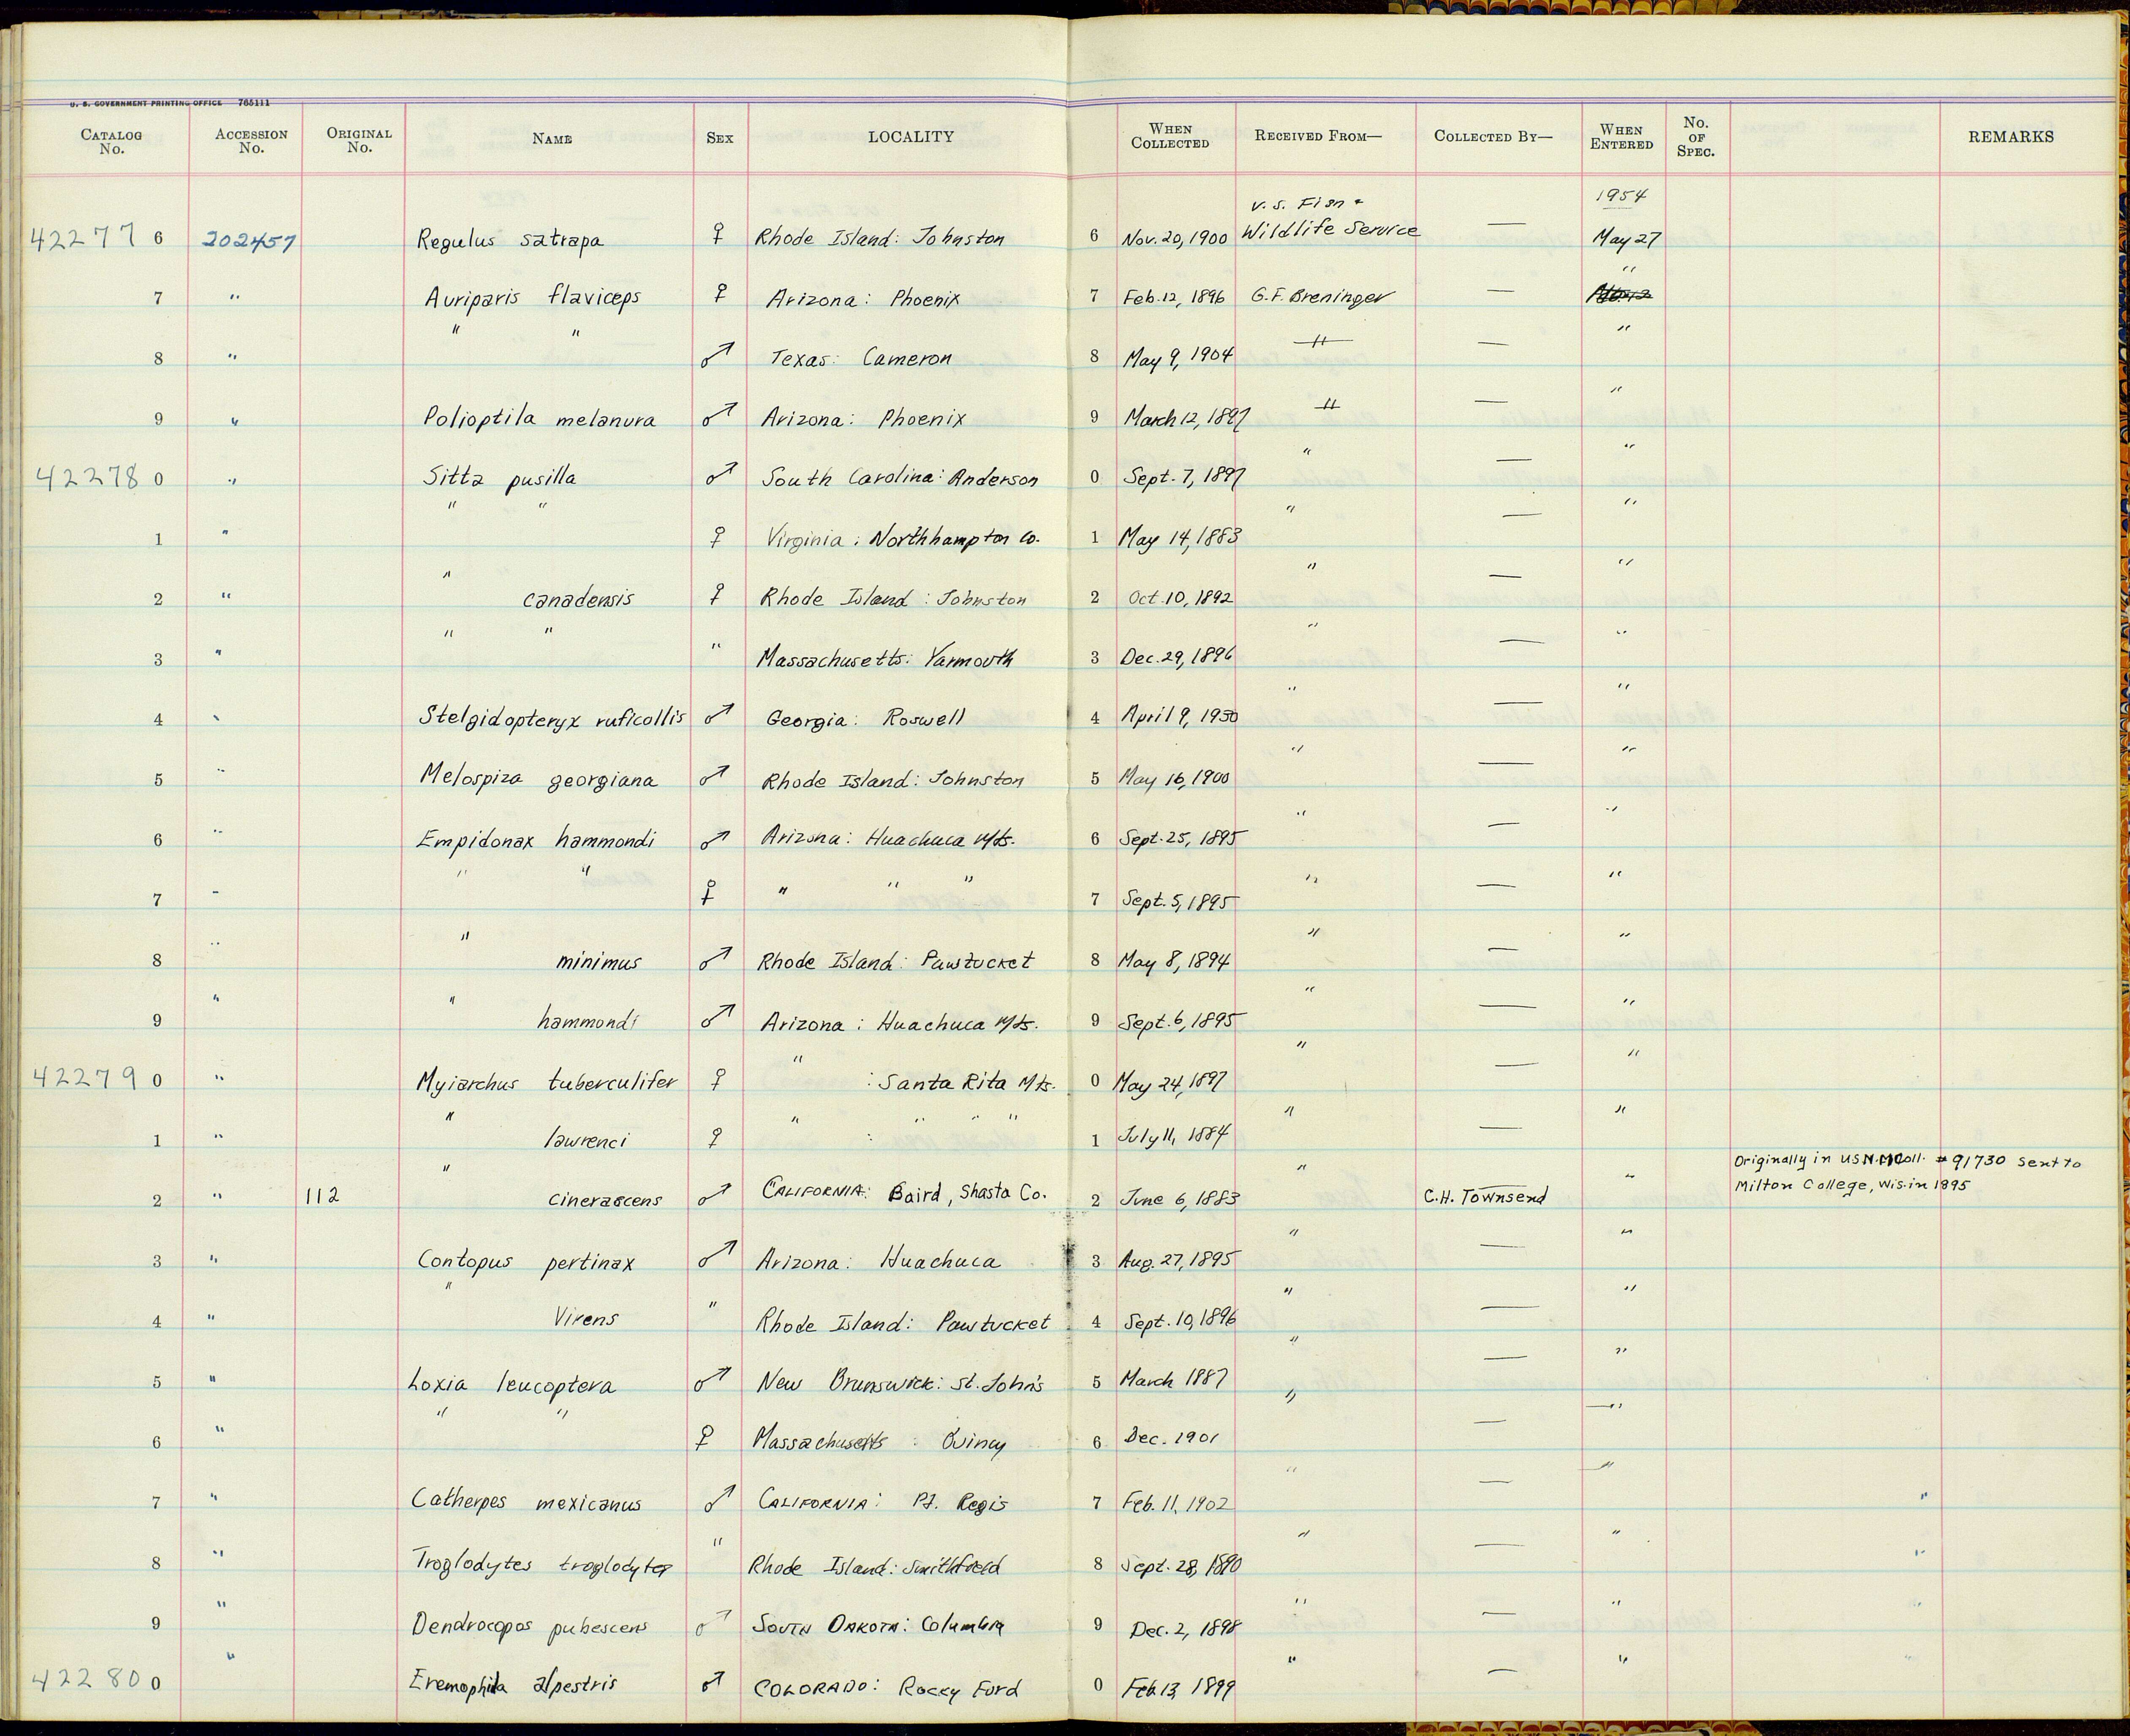 U. S. GOVERNMENT PRINTING OFFICE 765111
CATALOG No. ACCESSION No. ORIGINAL No. NAME SEX LOCALITY WHEN COLLECTED RECEIVED FROM— COLLECTED BY— WHEN ENTERED No. OF SPEC. REMARKS
1954
42277 6 202457 Regulus satrapa ♀ Rhode Island: Johnston 6 Nov. 20, 1900 U. S. Fish + Wildlife Service — May 27
7 " Auriparis flaviceps ♀ Arizona: Phoenix 7 Feb. 12, 1896 G. F. Breninger — "
8 " " " ♂ Texas: Cameron 8 May 9, 1904 " — "
9 " Polioptila melanura ♂ Arizona: Phoenix 9 March 12, 1897 " — "
42278 0 " Sitta pusilla ♂ South Carolina: Anderson 0 Sept. 7, 1897 " — "
1 " " " ♀ Virginia: Northhampton Co. 1 May 14, 1883 " — "
2 " " canadensis ♀ Rhode Island: Johnston 2 Oct. 10, 1892 " — "
3 " " " " Massachusetts: Yarmouth 3 Dec. 29, 1896 " — "
4 " Stelgidopteryx ruficollis ♂ Georgia: Roswell 4 April 9, 1930 " — "
5 " Melospiza georgiana ♂ Rhode Island: Johnston 5 May 16, 1900 " — "
6 " Empidonax hammondi ♂ Arizona: Huachuca Mts. 6 Sept. 25, 1895 " — "
7 " " " ♀ " " " 7 Sept. 5, 1895 " — "
8 " " minimus ♂ Rhode Island: Pawtucket 8 May 8, 1894 " — "
9 " " hammondi ♂ Arizona: Huachuca Mts. 9 Sept. 6, 1895 " — "
42279 0 " Myiarchus tuberculifer ♀ " : Santa Rita Mts. 0 May 24, 1897 " — "
1 " " lawrenci ♀ " : " " " 1 July 11, 1884 " — "
2 " 112 " cinerascens ♂ CALIFORNIA: Baird, Shasta Co. 2 June 6, 1883 " C.H. Townsend " Originally in USN.M Coll. # 91730 sent to Milton College, Wis. in 1895
3 " Contopus pertinax ♂ Arizona: Huachuca 3 Aug. 27, 1895 " — "
4 " " Virens " Rhode Island: Pawtucket 4 Sept. 10, 1896 " — "
5 " Loxia leucoptera ♂ New Brunswick: St. John's 5 March 1887 " — "
6 " " " ♀ Massachusetts: Quincy 6 Dec. 1901 " — "
7 " Catherpes mexicanus ♂ CALIFORNIA: Pt. Regis 7 Feb. 11, 1902 " — " "
8 " Troglodytes troglodytes " Rhode Island: Smithfield 8 Sept. 28, 1890 " — " "
9 " Dendrocopos pubescens ♂ SOUTH DAKOTA: Columbia 9 Dec. 2, 1898 " — " "
42280 0 " Eremophila alpestris ♂ COLORADO: Rocky Ford 0 Feb. 13, 1899 " — " "